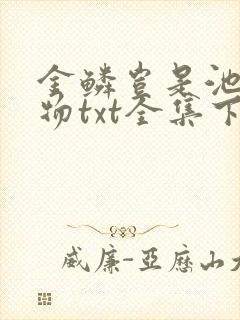 金鳞岂是池
物txt全集下
威廉-亚历山大